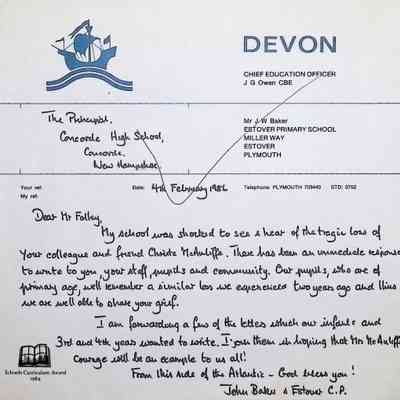 DEVON
CHIEF EDUCATION OFFICER
J G Owen CBE
The Principal,
Concorde High School,
Concorde.
New Hampshire.
Mr J W Baker
ESTOVER PRIMARY SCHOOL
MILLER WAY
ESTOVER
PLYMOUTH
Your ref:
My ref:
Date: 4th February 1986
Telephone PLYMOUTH 709440 STD: 0752
Dear Mr Folley,
My school was shocked to see & hear of the tragic loss of
your colleague and friend Christa McAuliffe. There has been an immediate response
to write to you, your staff, pupils and community. Our pupils, who are of
primary age, well remember a similar loss we experienced two years ago and thus
we are well able to share your grief.
I am forwarding a few of the letters which our infants and
3rd and 4th years wanted to write. I join them in hoping that Mrs McAuliffe's
Courage will be an example to us all!
From this side of the Atlantic - God bless you!
John Baker & Estover C.P.
Schools Curriculum Award
1984